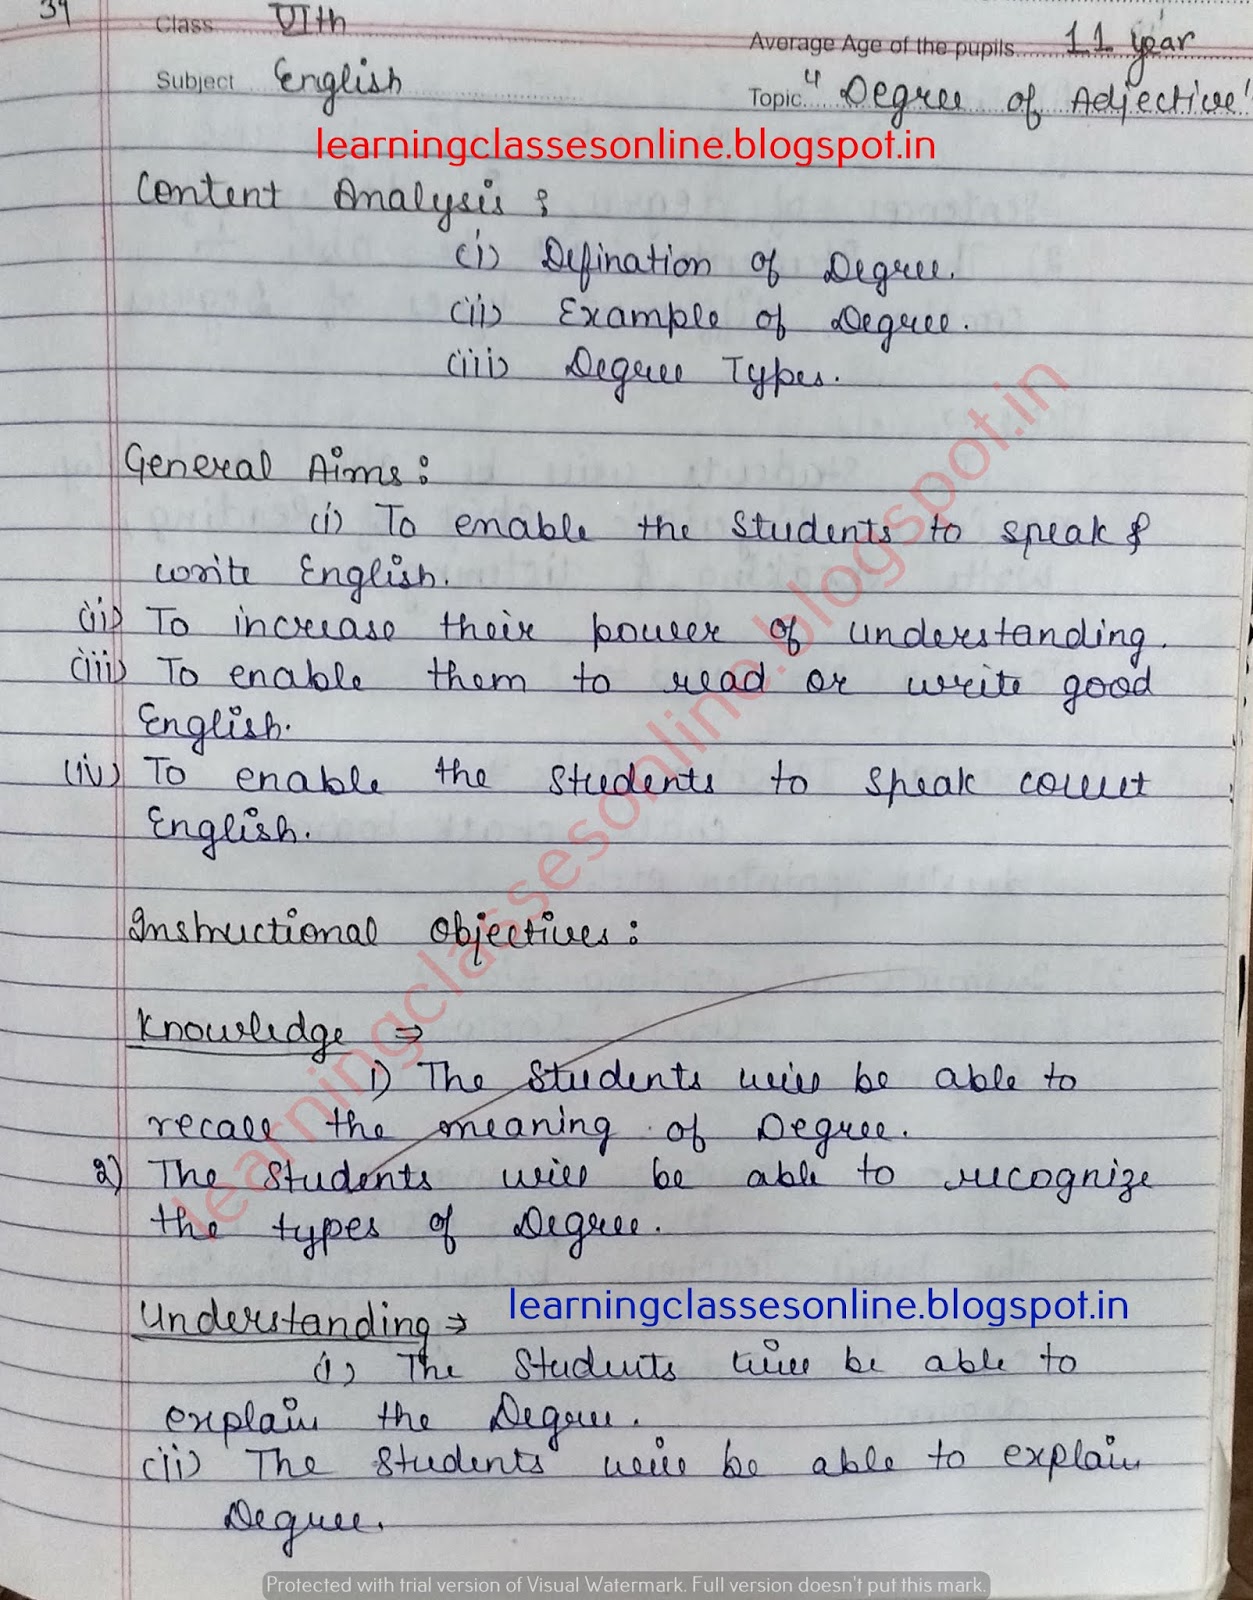 34
Class VIth
Average Age of the pupils 11 year
Subject English
Topic "Degree of Adjective"
learningclassesonline.blogspot.in
Content Analysis :
(i) Defination of Degree.
(ii) Example of Degree.
(iii) Degree Types.
General Aims :
(i) To enable the students to speak &
write English.
(ii) To increase their power of understanding.
(iii) To enable them to read or write good
English.
(iv) To enable the students to speak correct
English.
Instructional Objectives :
Knowledge ⇒
1) The students will be able to
recall the meaning of Degree.
2) The students will be able to recognize
the types of Degree.
learningclassesonline.blogspot.in
Understanding → learningclassesonline.blogspot.in
(i) The students will be able to
explain the Degree.
(ii) The students will be able to explain
Degree.
Protected with trial version of Visual Watermark. Full version doesn't put this mark.